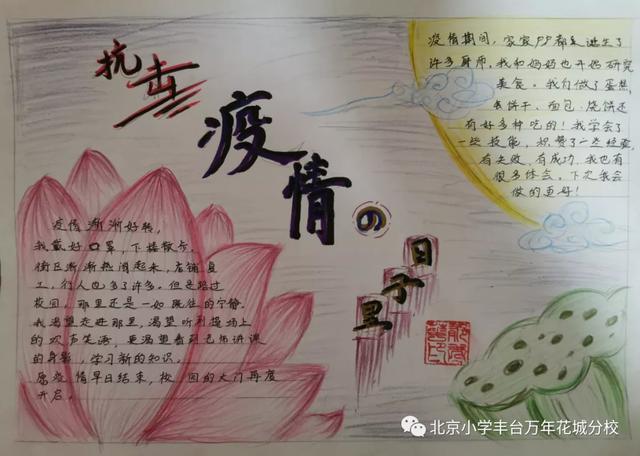 抗击
疫情の
日子里
疫情期间，家家户户都走进了
许多厨师，我和妈妈也开始研究
美食。我们做了蛋糕、
饼干、面包、烧饼还
有好多种吃的！我学会了
一些技能，积攒了一些经验，
有失败，有成功，我也有
很多体会，下次我会
做的更好！
疫情渐渐好转，
我戴好口罩，下楼散步，
街区渐渐热闹起来，店铺复
工，行人也多了许多。但是路过
校园，那里还是一如既往的宁静。
我渴望走进那里，渴望听到操场上
的欢声笑语，更渴望看到老师讲课
的身影，学习新的知识。
愿疫情早日结束，校园的大门再度
开启。
北京小学丰台万年花城分校